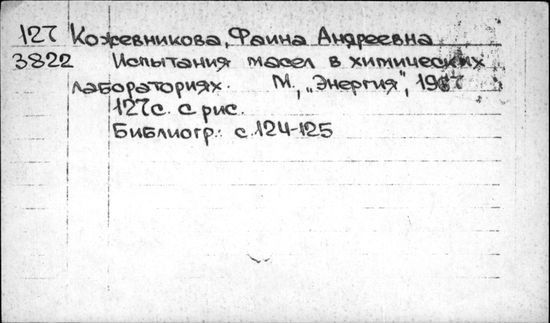 127 Кожевникова, Фаина Андреевна
3822 Испытания масел в химических
лабораториях. М., „Энергия", 1967
127с. с рис.
Библиогр.: с.124-125